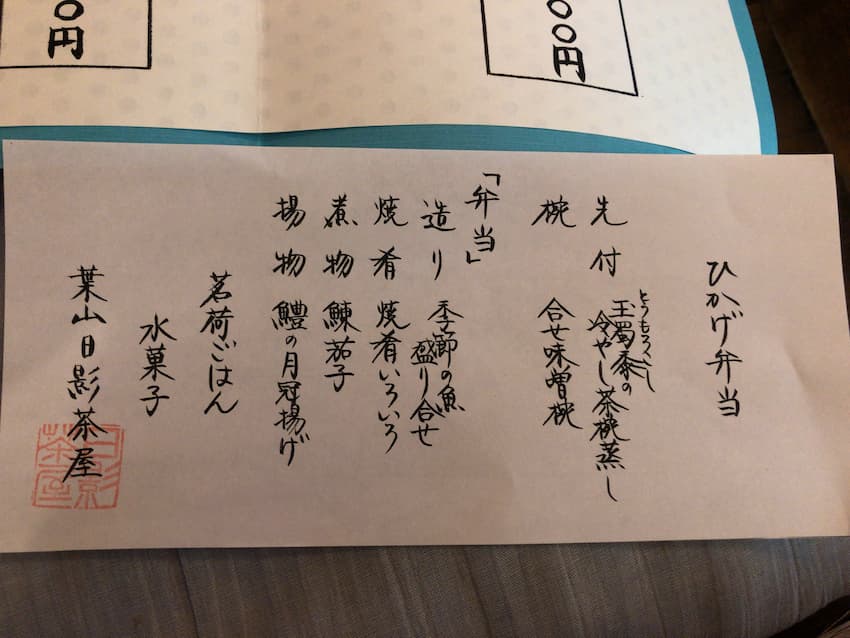 〇円
〇〇円
ひかげ弁当
先付 玉蜀黍の
とうもろこし
冷やし茶椀蒸し
椀 合せ味噌椀
「弁当」
造り 季節の魚
盛り合せ
焼肴 焼肴いろいろ
煮物 鰊茄子
揚物 鱧の月冠揚げ
茗荷ごはん
水菓子
葉山日影茶屋
日影茶屋